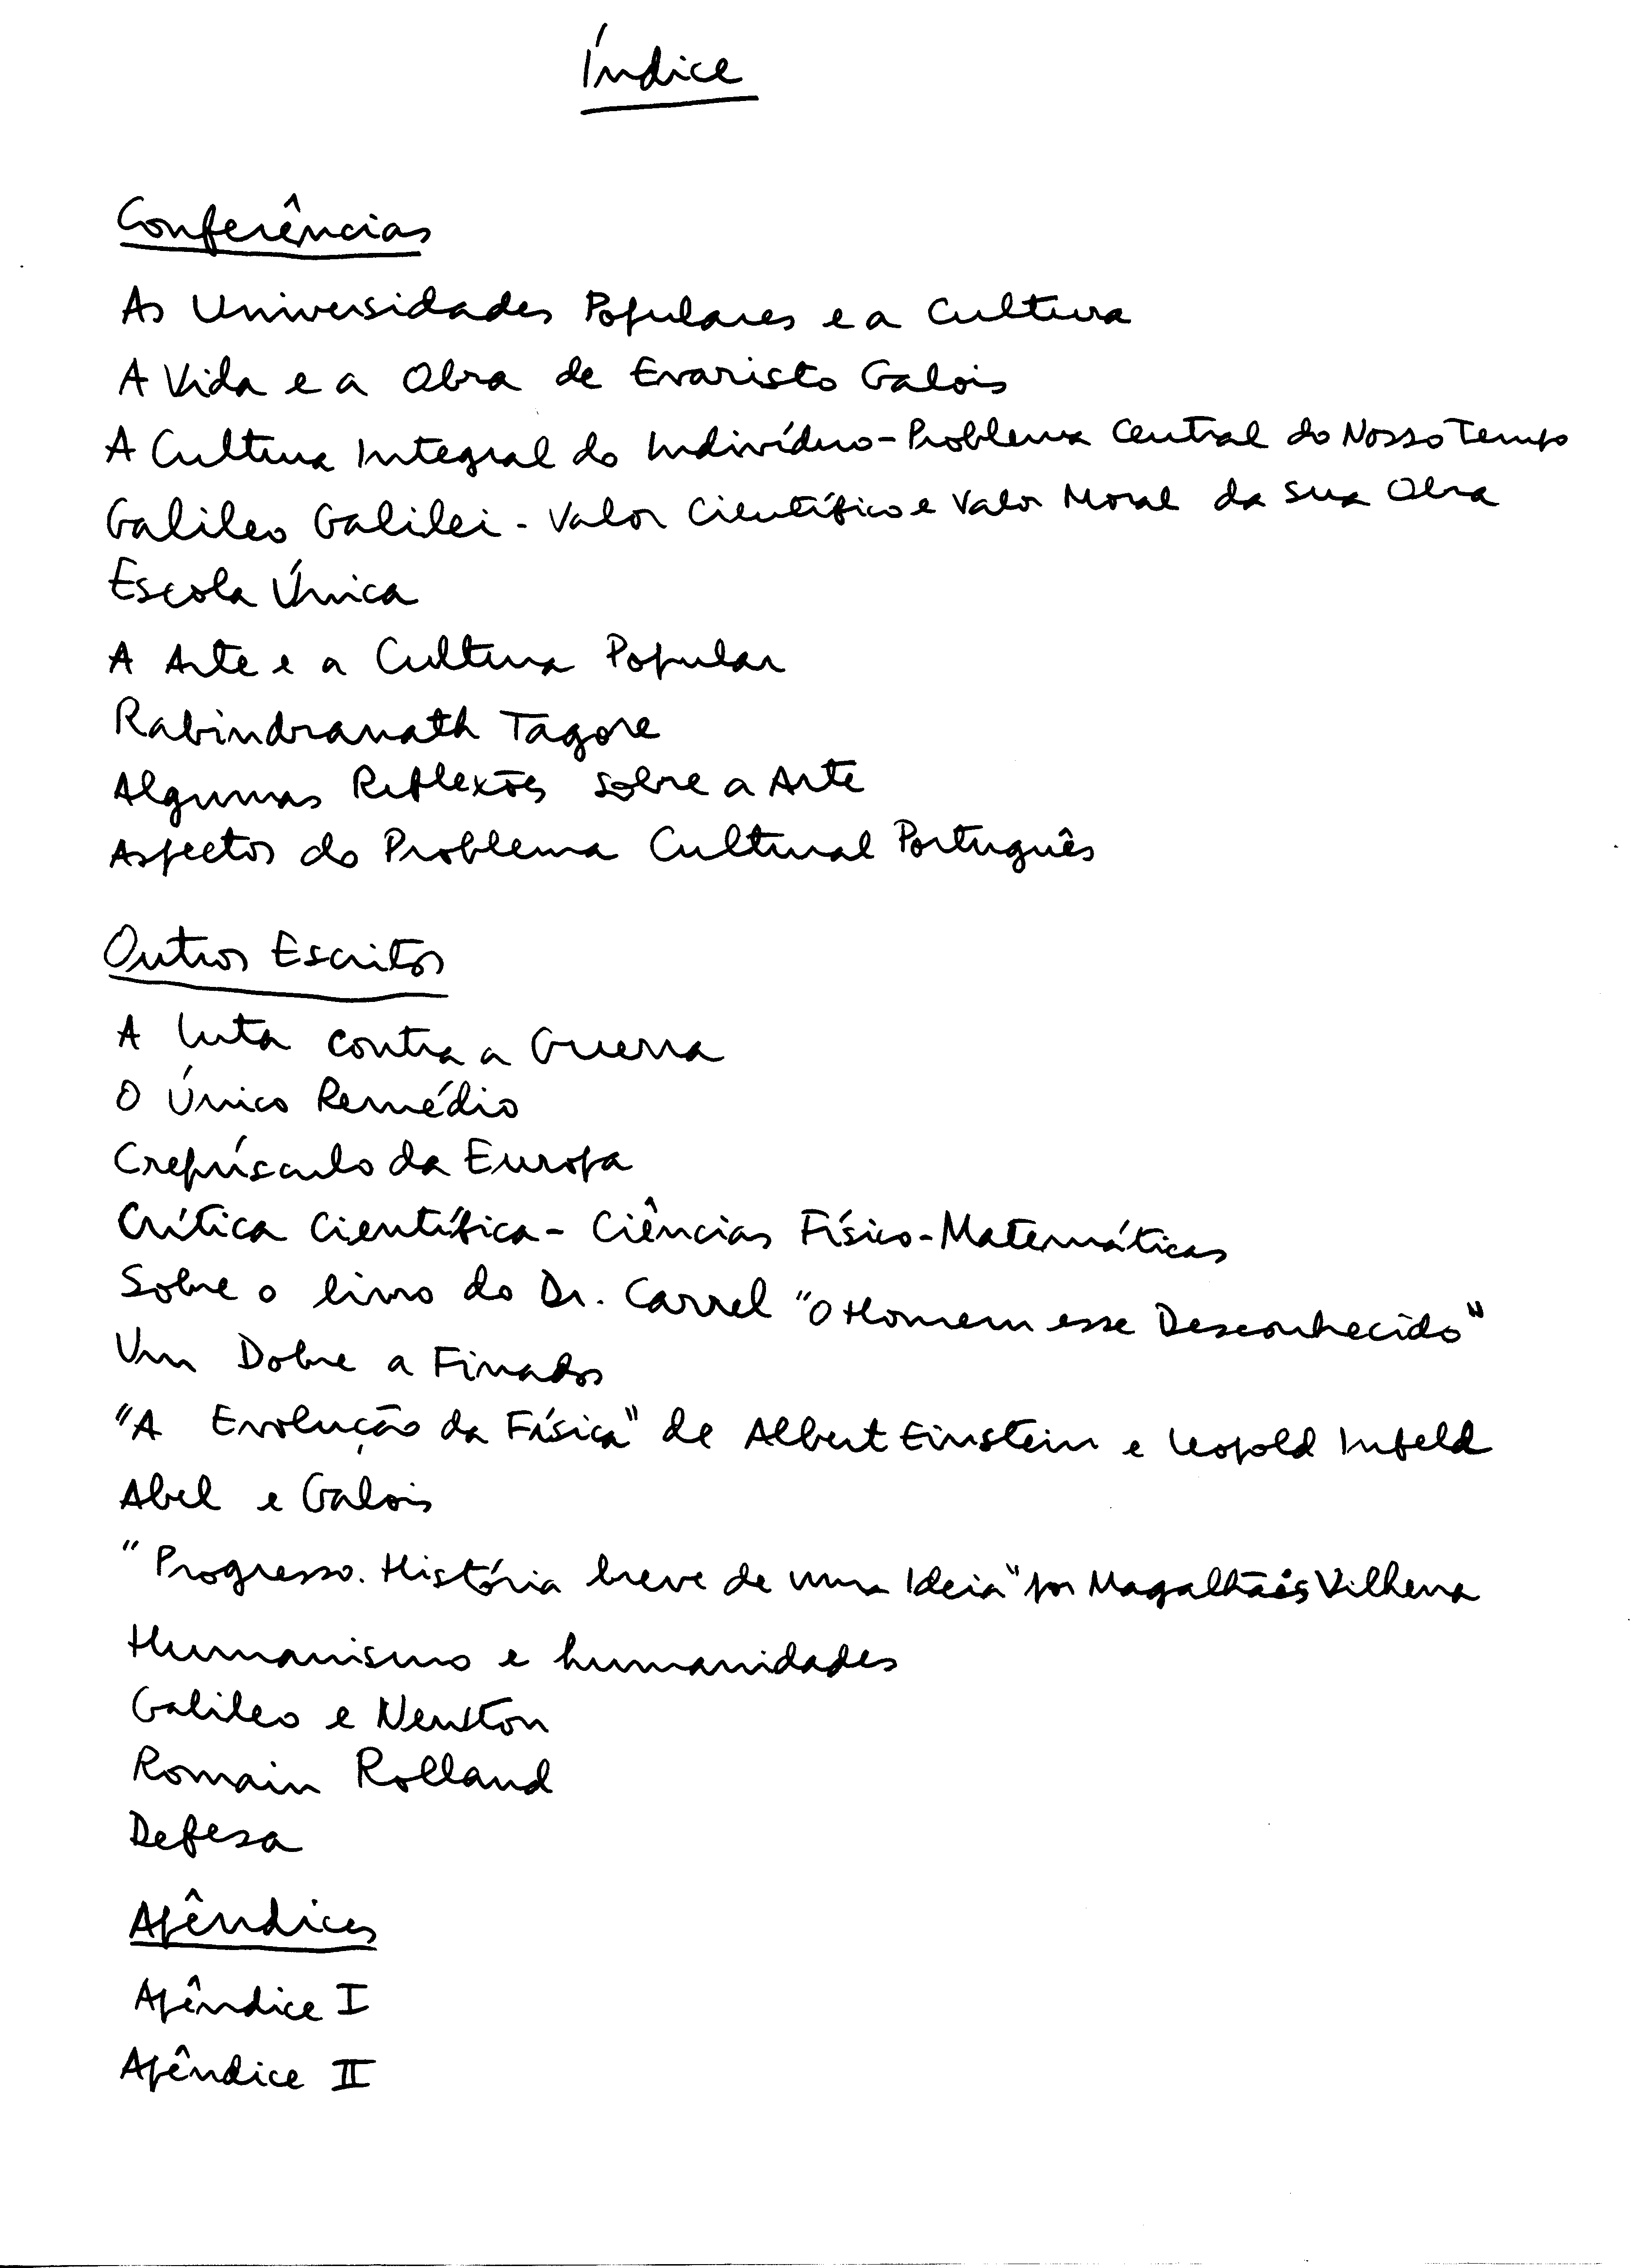 Índice
Conferências
As Universidades Populares e a Cultura
A Vida e a Obra de Evaristo Galois
A Cultura Integral do Indivíduo - Problema Central do Nosso Tempo
Galileo Galilei - Valor Científico e Valor Moral da sua Obra
Escola Única
A Arte e a Cultura Popular
Rabindranath Tagore
Algumas Reflexões sobre a Arte
Aspectos do Problema Cultural Português
Outros Escritos
A luta contra a Guerra
O Único Remédio
Crepúsculo da Europa
Crítica Científica - Ciências Físico-Matemáticas
Sobre o livro do Dr. Carrel "O Homem esse Desconhecido"
Um Dobre a Finados
"A Evolução da Física" de Albert Einstein e Leopold Infeld
Abel e Galois
"Progresso. História breve de uma Ideia" por Magalhães Vilhena
Humanismo e humanidades
Galileo e Newton
Romain Rolland
Defesa
Apêndices
Apêndice I
Apêndice II